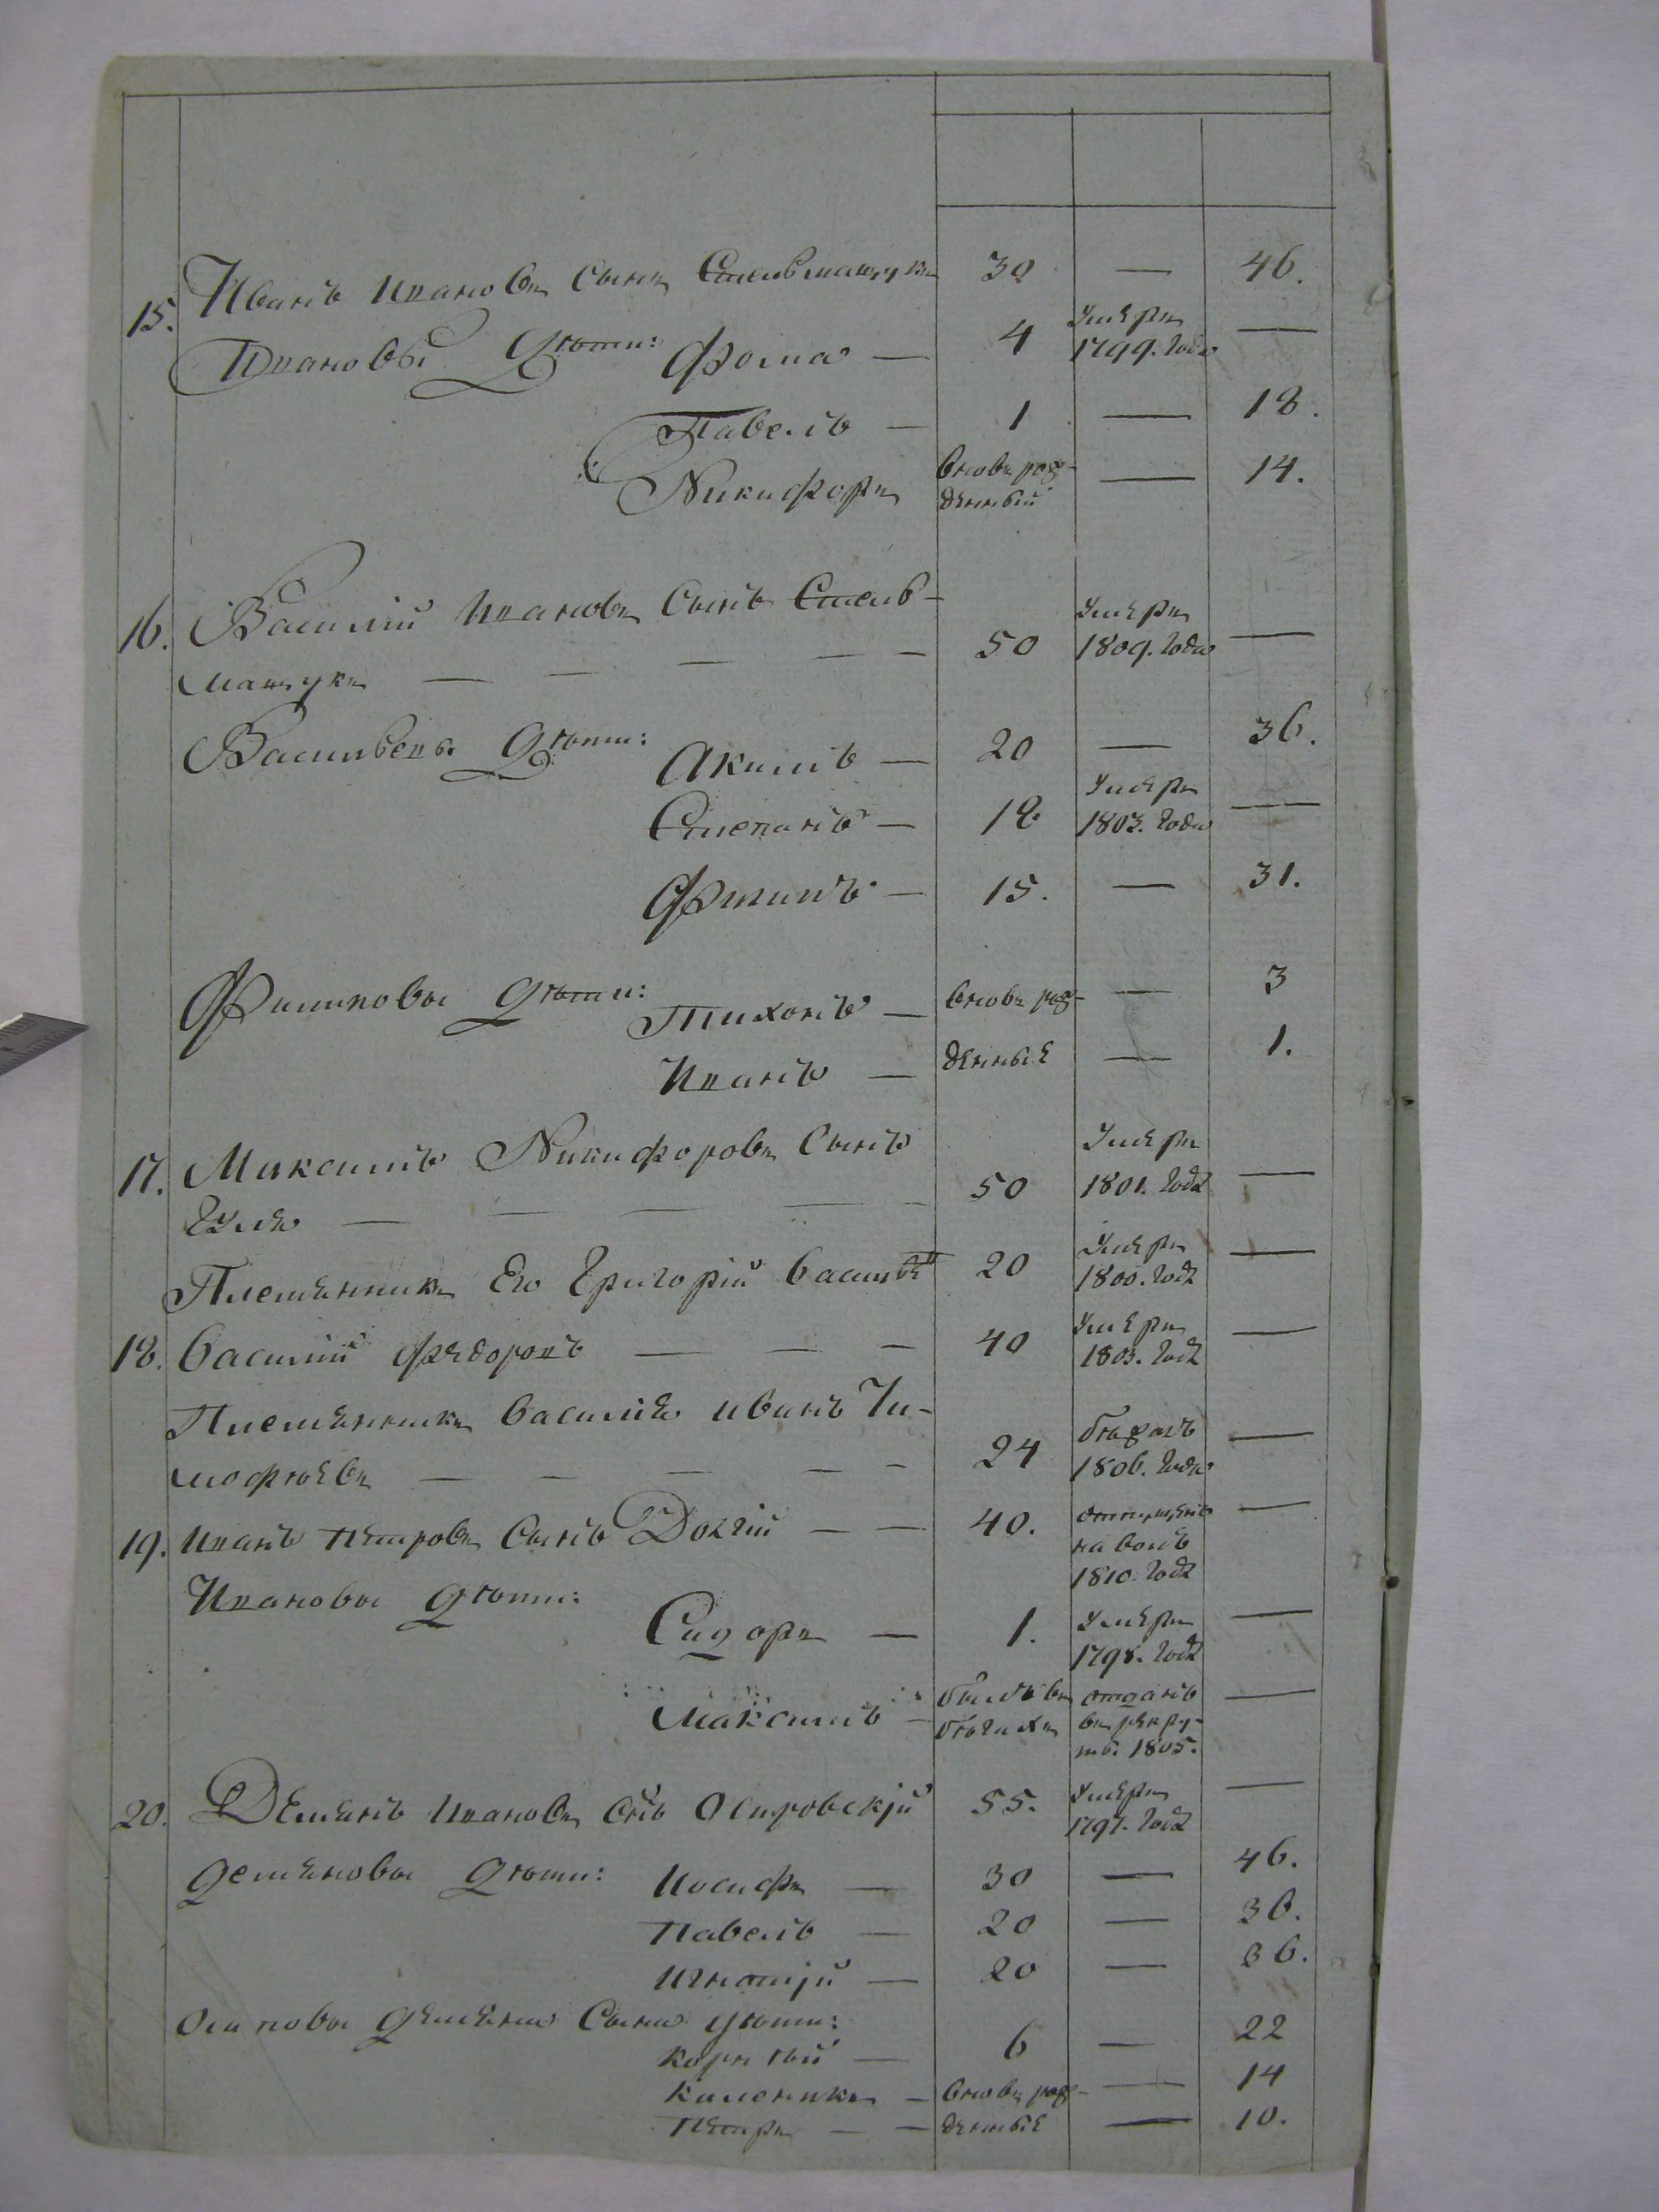 15. Иванъ Ивановъ Сынъ Стельмащукъ 30 — 46.
Ивановы Дѣти: Фома — 4 Умеръ 1799. года —
Павелъ — 1 — 18.
Никифоръ вновь рож- — 14.
денный
16. Василий Ивановъ Сынъ Стель- Умеръ
мащукъ — — — — — 50 1809. года —
Васильевы Дѣти: Акимъ — 20 — 36.
Степанъ — 18 Умеръ 1803. года —
Филипъ — 15. — 31.
Филиповы Дѣти: Тихонъ — вновь рож- — 3
Иванъ — денные — 1.
17. Максимъ Никифоровъ Сынъ Умеръ
— — — — — 50 1801. года —
Племенникъ Его Григорій Василев 20 Умеръ 1800. года —
18. Василий Федоровъ — — — 40 Умеръ 1803. года —
Племенникъ Василія иванъ Ти-
мофѣевъ — — — — — 24 бѣжалъ 1806. года —
19. Иванъ Петровъ Сынъ Долгій — — 40. отпущенъ —
на волю
1810 года
Ивановы Дѣти:
Сидоръ — 1. Умеръ 1798. года —
Максимъ — былъ въ отданъ —
бѣгахъ въ рекру-
ты 1805.
20. Демянъ Ивановъ Снъ Островскій 55. Умеръ 1797. года —
Демяновы Дѣти: Иосифъ — 30 — 46.
Павелъ — 20 — 36.
Игнатій — 20 — 36.
Осиповы Демяна Сына Дѣти:
Корнѣй — 6 — 22
Каленикъ — вновь рож- — 14
Петръ — — денные — 10.